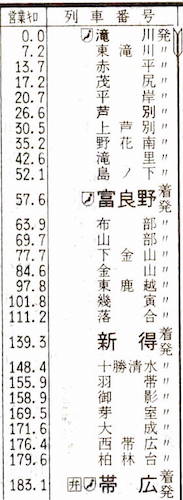 営業キロ 列車番号
0.0 滝川 発
7.2 東滝川 〃
13.7 赤平 〃
17.2 茂尻 〃
20.7 平岸 〃
26.6 芦別 〃
30.5 上芦別 〃
35.2 野花南 〃
42.6 滝里 〃
52.1 島ノ下 〃
57.6 富良野 着発
63.9 布部 〃
69.7 山部 〃
77.7 下金山 〃
84.6 金山 〃
97.8 東鹿越 〃
101.8 幾寅 〃
111.2 落合 〃
139.3 新得 着発
148.4 十勝清水 〃
155.9 羽帯 〃
158.9 御影 〃
169.5 芽室 〃
171.6 大成 〃
176.4 西帯広 〃
179.6 柏林台 〃
183.1 弁 帯広 着発